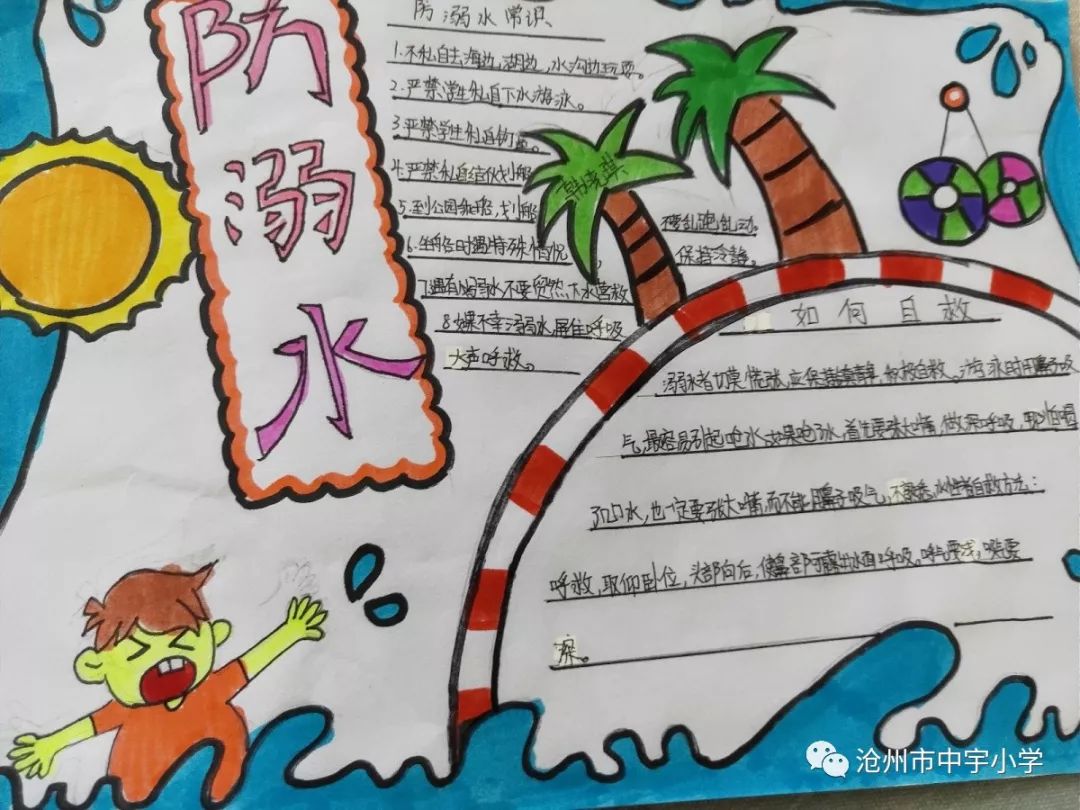 防溺水
防溺水常识
1.不私自去海边,湖边,水沟边玩耍。
2.严禁学生私自下水游泳。
3.严禁学生私自钓鱼。
4.严禁私自结伙划船
5.到公园乘船,划船
不要乱跑乱动。
6.生活各时遇特殊情况
保持冷静。
7.遇有人溺水不要贸然下水营救
8.如果不幸溺水,屏住呼吸
大声呼救。
如何自救
溺水者切莫慌张,应保持镇静,积极自救。游泳时用鼻子吸
气,最容易引起呛水,如果呛了水,首先要张大嘴,做深呼吸,哪怕喝
了几口水,也一定要张大嘴,而不能用鼻子吸气,不熟悉水性者自救方法:
呼救,取仰卧位,头部向后,使鼻部可露出水面呼吸。呼气要浅,吸气要
深。
沧州市中宇小学